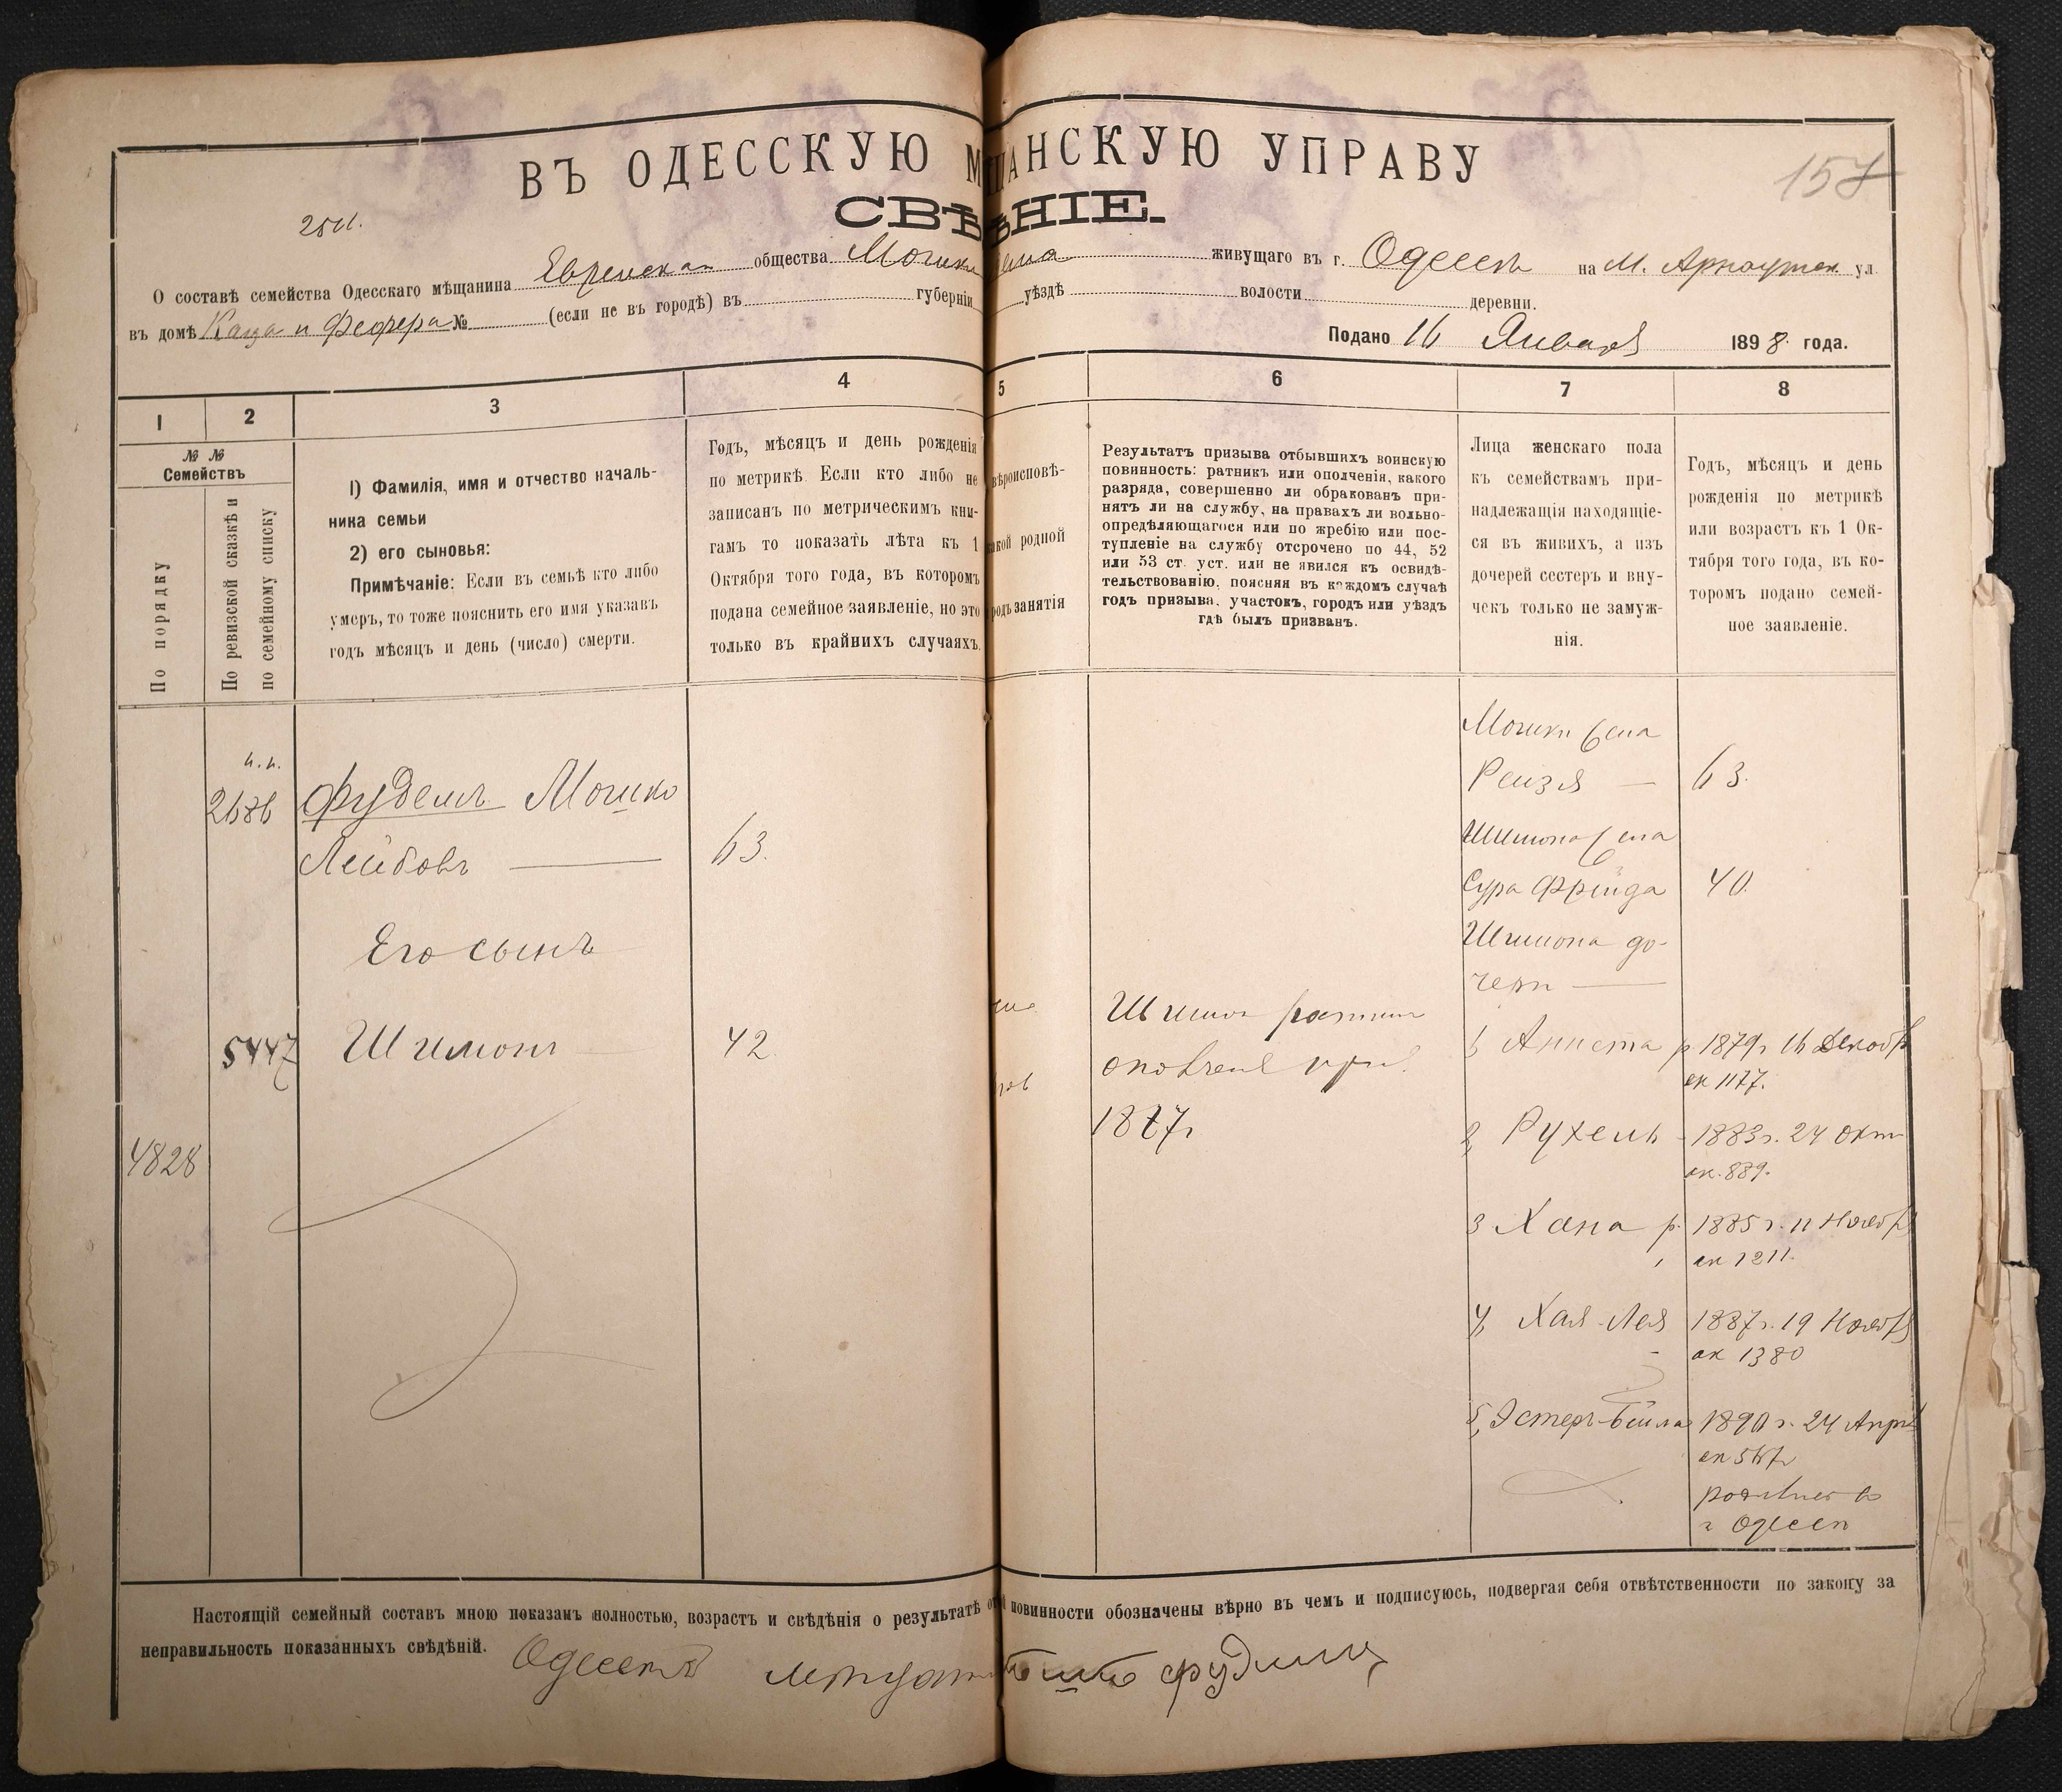 ВЪ ОДЕССКУЮ М ЩАНСКУЮ УПРАВУ
157
СВѢ ѢНІЕ.
О составѣ семейства Одесскаго мѣщанина Еврейскаго общества Мошки живущаго въ г. Одессѣ на М. Арнаутск. ул.
въ домѣ Каца и Фефера № (если не въ городѣ) въ губерніи уѣздѣ волости деревни.
Подано 16 Января 1898 года.
1 2 3 4 5 6 7 8
№ №
Семействъ
По порядку
По ревизской сказкѣ и
по семейному списку
1) Фамилія, имя и отчество началь-
ника семьи
2) его сыновья:
Примѣчаніе: Если въ семьѣ кто либо
умеръ, то тоже пояснить его имя указавъ
годъ мѣсяцъ и день (число) смерти.
Годъ, мѣсяцъ и день рожденія
по метрикѣ Если кто либо не
записанъ по метрическимъ кни-
гамъ то показать лѣта къ 1
Октября того года, въ которомъ
подана семейное заявленіе, но это
только въ крайнихъ случаяхъ.
вѣроисповѣ-
акой родной
родъ занятія
Результатъ призыва отбывшихъ воинскую
повинность: ратникъ или ополченія, какого
разряда, совершенно ли обракованъ при-
нятъ ли на службу, на правахъ ли вольно-
опредѣляющагося или по жребію или пос-
тупленіе на службу отсрочено по 44, 52
или 53 ст. уст. или не явился къ освидѣ-
тельствованію, поясняя въ каждомъ случаѣ
годъ призыва, участокъ, городъ или уѣздъ
гдѣ былъ призванъ.
Лица женскаго пола
къ семействамъ при-
надлежащія находящіе-
ся въ живихъ, а изъ
дочерей сестеръ и вну-
чекъ только не замуж-
нія.
Годъ, мѣсяцъ и день
рожденія по метрикѣ
или возрастъ къ 1 Ок-
тября того года, въ ко-
торомъ подано семей-
ное заявленіе.
2686 Фудемъ Мошко
Лейбовъ 63.
Его сынъ
5447 Шимонъ 42
4828
Шимон ратник
ополченя
Мошки жена
Рейзя 63.
Шимона жена
Сура Фрейда 40.
Шимона до-
чери
1, Аннета р. 1879 г 16 Декабр
ак 1177.
2, Рухель 1883 г. 24 Окт
ак. 889.
3 Хана р. 1885 г. 11 Ноябр
ак 1211.
4, Хая-Лея 1887 г. 19 Ноябр
ак 1380
5, Эстеръ-Бейла 1890 г. 24 Апр
ак
родились в
г Одессѣ
Настоящій семейный составъ мною показанъ полностью, возрастъ и свѣдѣнія о результатѣ от повинности обозначены вѣрно въ чемъ и подписуюсь, подвергая себя отвѣтственности по закону за
неправильность показанныхъ свѣдѣній.